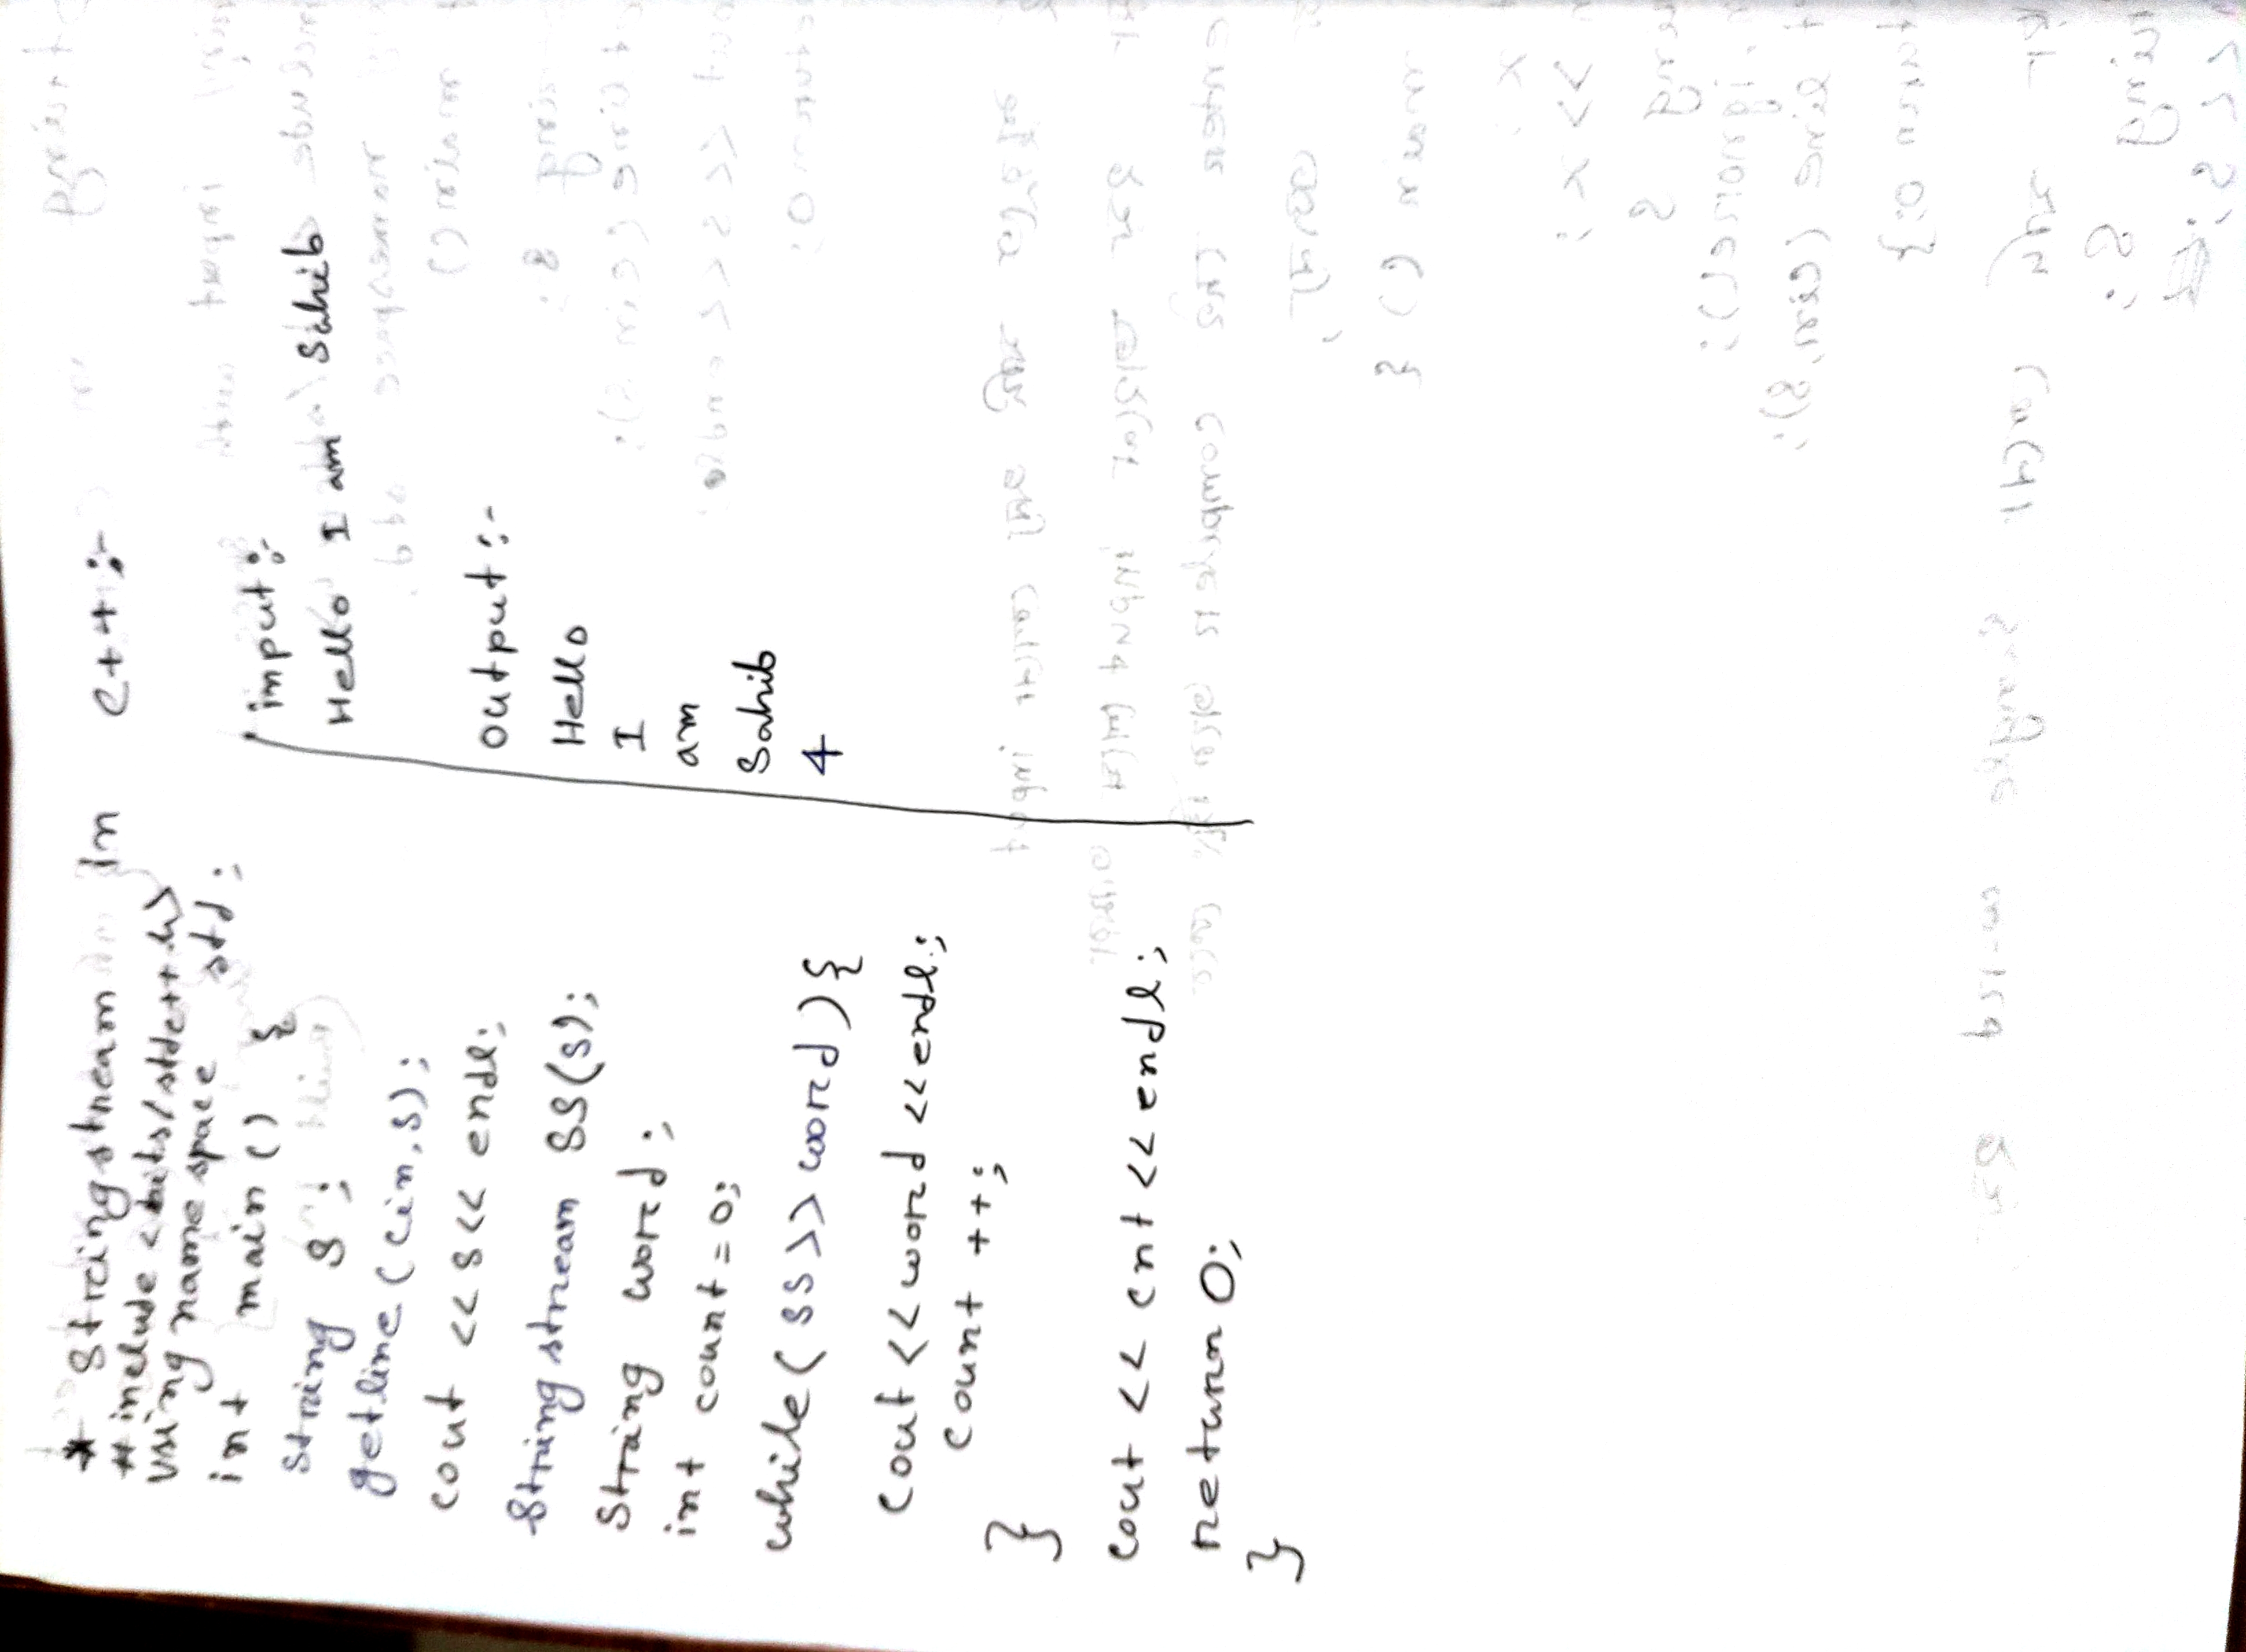 * Stringstream in c++ :-
#include <bits/stdc++.h>
using namespace std;
int main () {
string s ;
getline (cin, s);
cout << s << endl;
stringstream ss(s);
string word ;
int count = 0;
while ( ss >> word ) {
cout << word << endl;
count ++;
}
cout << cnt << endl;
return 0;
}
input :-
Hello I am Sahib
output :-
Hello
I
am
Sahib
4